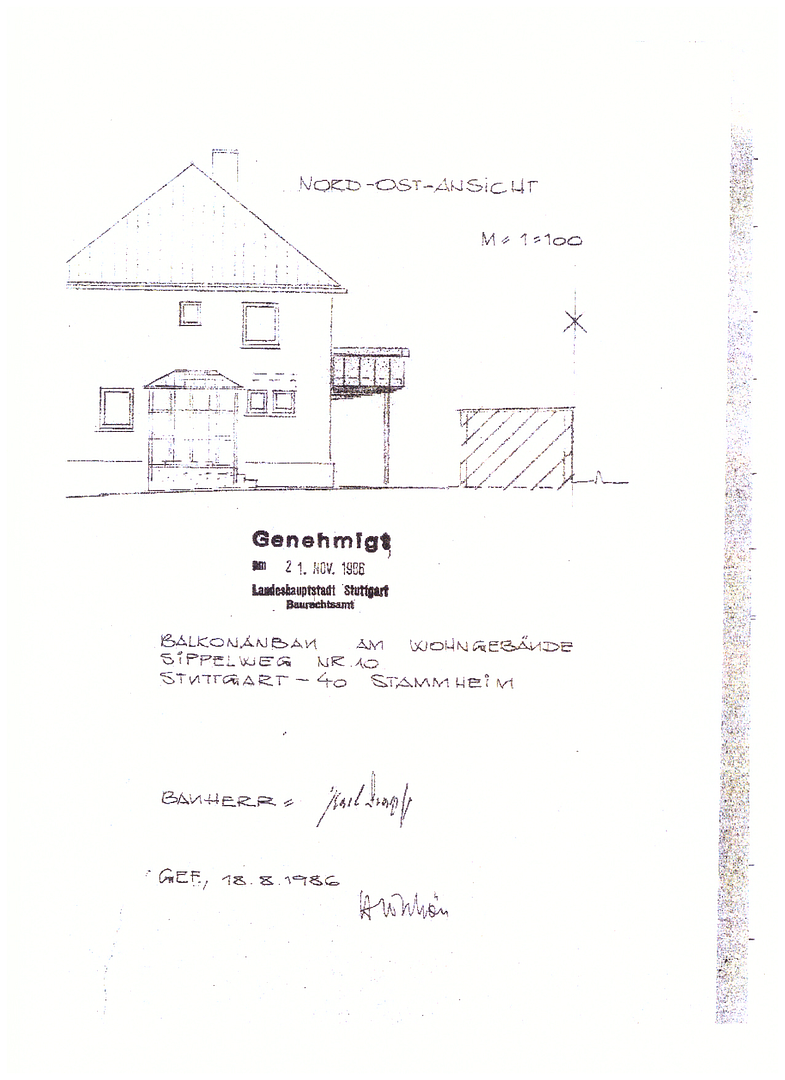 NORD-OST-ANSICHT
M = 1:100
Genehmigt
am 21. NOV. 1986
Landeshauptstadt Stuttgart
Baurechtsamt
BALKONANBAU AM WOHNGEBÄUDE
SIPPELWEG NR.10
STUTTGART - 40 STAMMHEIM
BAUHERR =
GEF., 18.8.1986